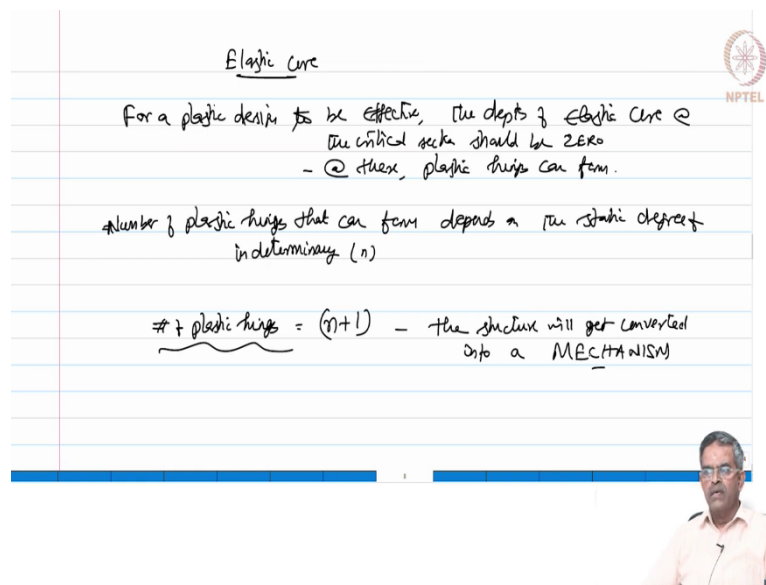 Elastic core
NPTEL
For a plastic design to be effective, the depth of elastic core @
the critical section should be ZERO
- @ these, plastic hinges can form.
Number of plastic hinges that can form depends on the static degree of
indeterminacy (n)
# of plastic hinges = (n+1) - the structure will get converted
into a MECHANISM